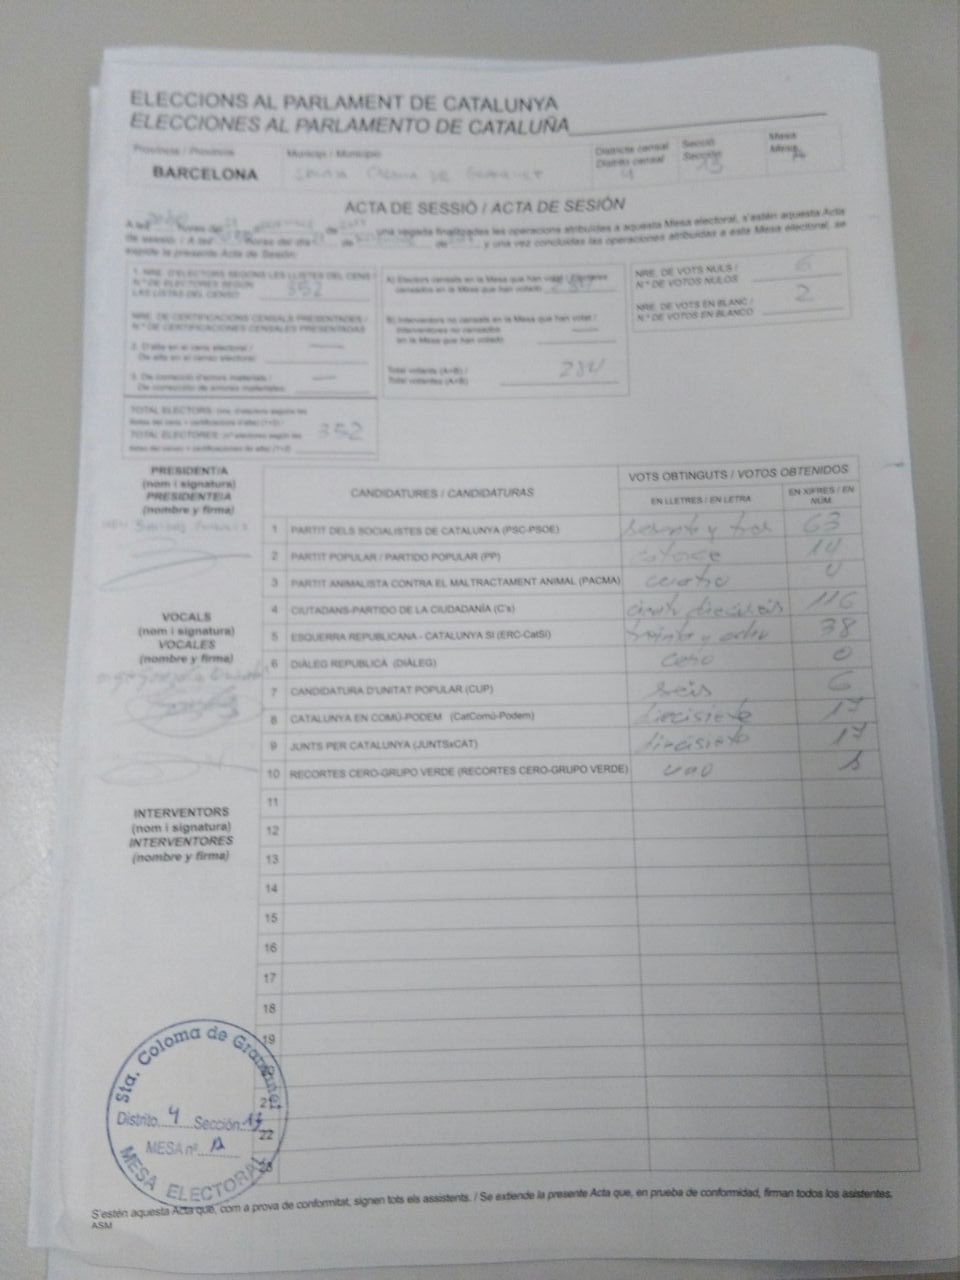 ELECCIONS AL PARLAMENT DE CATALUNYA
ELECCIONES AL PARLAMENTO DE CATALUÑA
Província / Provincia
Municipi / Municipio
Districte censal
Distrito censal
Secció
Sección
Mesa
Mesa
BARCELONA
4
13
A
ACTA DE SESSIÓ / ACTA DE SESIÓN
una vegada finalitzades les operacions atribuïdes a aquesta Mesa electoral, s'estén aquesta Acta
de sessió / A les
y una vez concluidas las operaciones atribuidas a esta Mesa electoral, se
expide la presente Acta de Sesión:
1. NRE. D'ELECTORS SEGONS LES LLISTES DEL CENS /
N.º DE ELECTORES SEGÚN
LAS LISTAS DEL CENSO
352
NRE. DE CERTIFICACIONS CENSALS PRESENTADES /
N.º DE CERTIFICACIONES CENSALES PRESENTADAS
2. D'alta en el cens electoral /
De alta en el censo electoral
3. De correcció d'errors materials /
De corrección de errores materiales
TOTAL ELECTORS
TOTAL ELECTORES
352
A) Electors censats en la Mesa que han votat / Electores
censados en la Mesa que han votado
B) Interventors no censats en la Mesa que han votat /
Interventores no censados
en la Mesa que han votado
Total votants (A+B) /
Total votantes (A+B)
284
NRE. DE VOTS NULS /
N.º DE VOTOS NULOS
6
NRE. DE VOTS EN BLANC /
N.º DE VOTOS EN BLANCO
2
PRESIDENT/A
(nom i signatura)
PRESIDENTE/A
(nombre y firma)
VOCALS
(nom i signatura)
VOCALES
(nombre y firma)
INTERVENTORS
(nom i signatura)
INTERVENTORES
(nombre y firma)
CANDIDATURES / CANDIDATURAS
VOTS OBTINGUTS / VOTOS OBTENIDOS
EN LLETRES / EN LETRA
EN XIFRES / EN NÚM.
1 PARTIT DELS SOCIALISTES DE CATALUNYA (PSC-PSOE) sesenta y tres 63
2 PARTIT POPULAR / PARTIDO POPULAR (PP) catorce 14
3 PARTIT ANIMALISTA CONTRA EL MALTRACTAMENT ANIMAL (PACMA) cuatro 4
4 CIUTADANS-PARTIDO DE LA CIUDADANÍA (C's) ciento dieciseis 116
5 ESQUERRA REPUBLICANA - CATALUNYA SÍ (ERC-CatSí) treinta y ocho 38
6 DIÀLEG REPUBLICÀ (DIÀLEG) cero 0
7 CANDIDATURA D'UNITAT POPULAR (CUP) seis 6
8 CATALUNYA EN COMÚ-PODEM (CatComú-Podem) diecisiete 17
9 JUNTS PER CATALUNYA (JUNTSxCAT) diecisiete 17
10 RECORTES CERO-GRUPO VERDE (RECORTES CERO-GRUPO VERDE) uno 1
11
12
13
14
15
16
17
18
19
21
22
23
Sta. Coloma de Gramenet
Distrito 4 Sección 13
MESA nº A
MESA ELECTORAL
S'estén aquesta Acta que, com a prova de conformitat, signen tots els assistents. / Se extiende la presente Acta que, en prueba de conformidad, firman todos los asistentes.
ASM